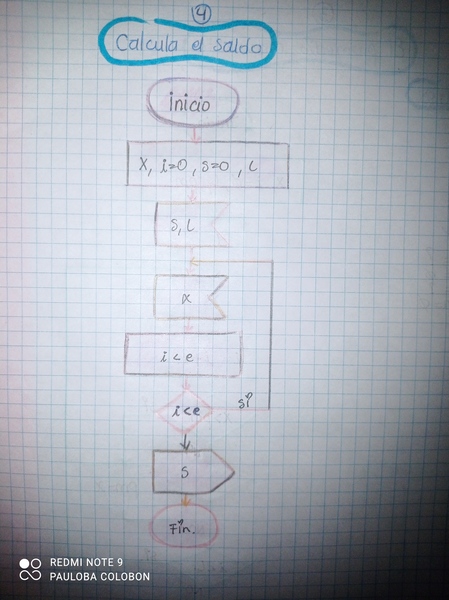 4
Calcula el Saldo
inicio
X, i=0, s=0, L
S, L
X
i < e
i < e
sí
S
Fin.
REDMI NOTE 9
PAULOBA COLOBON